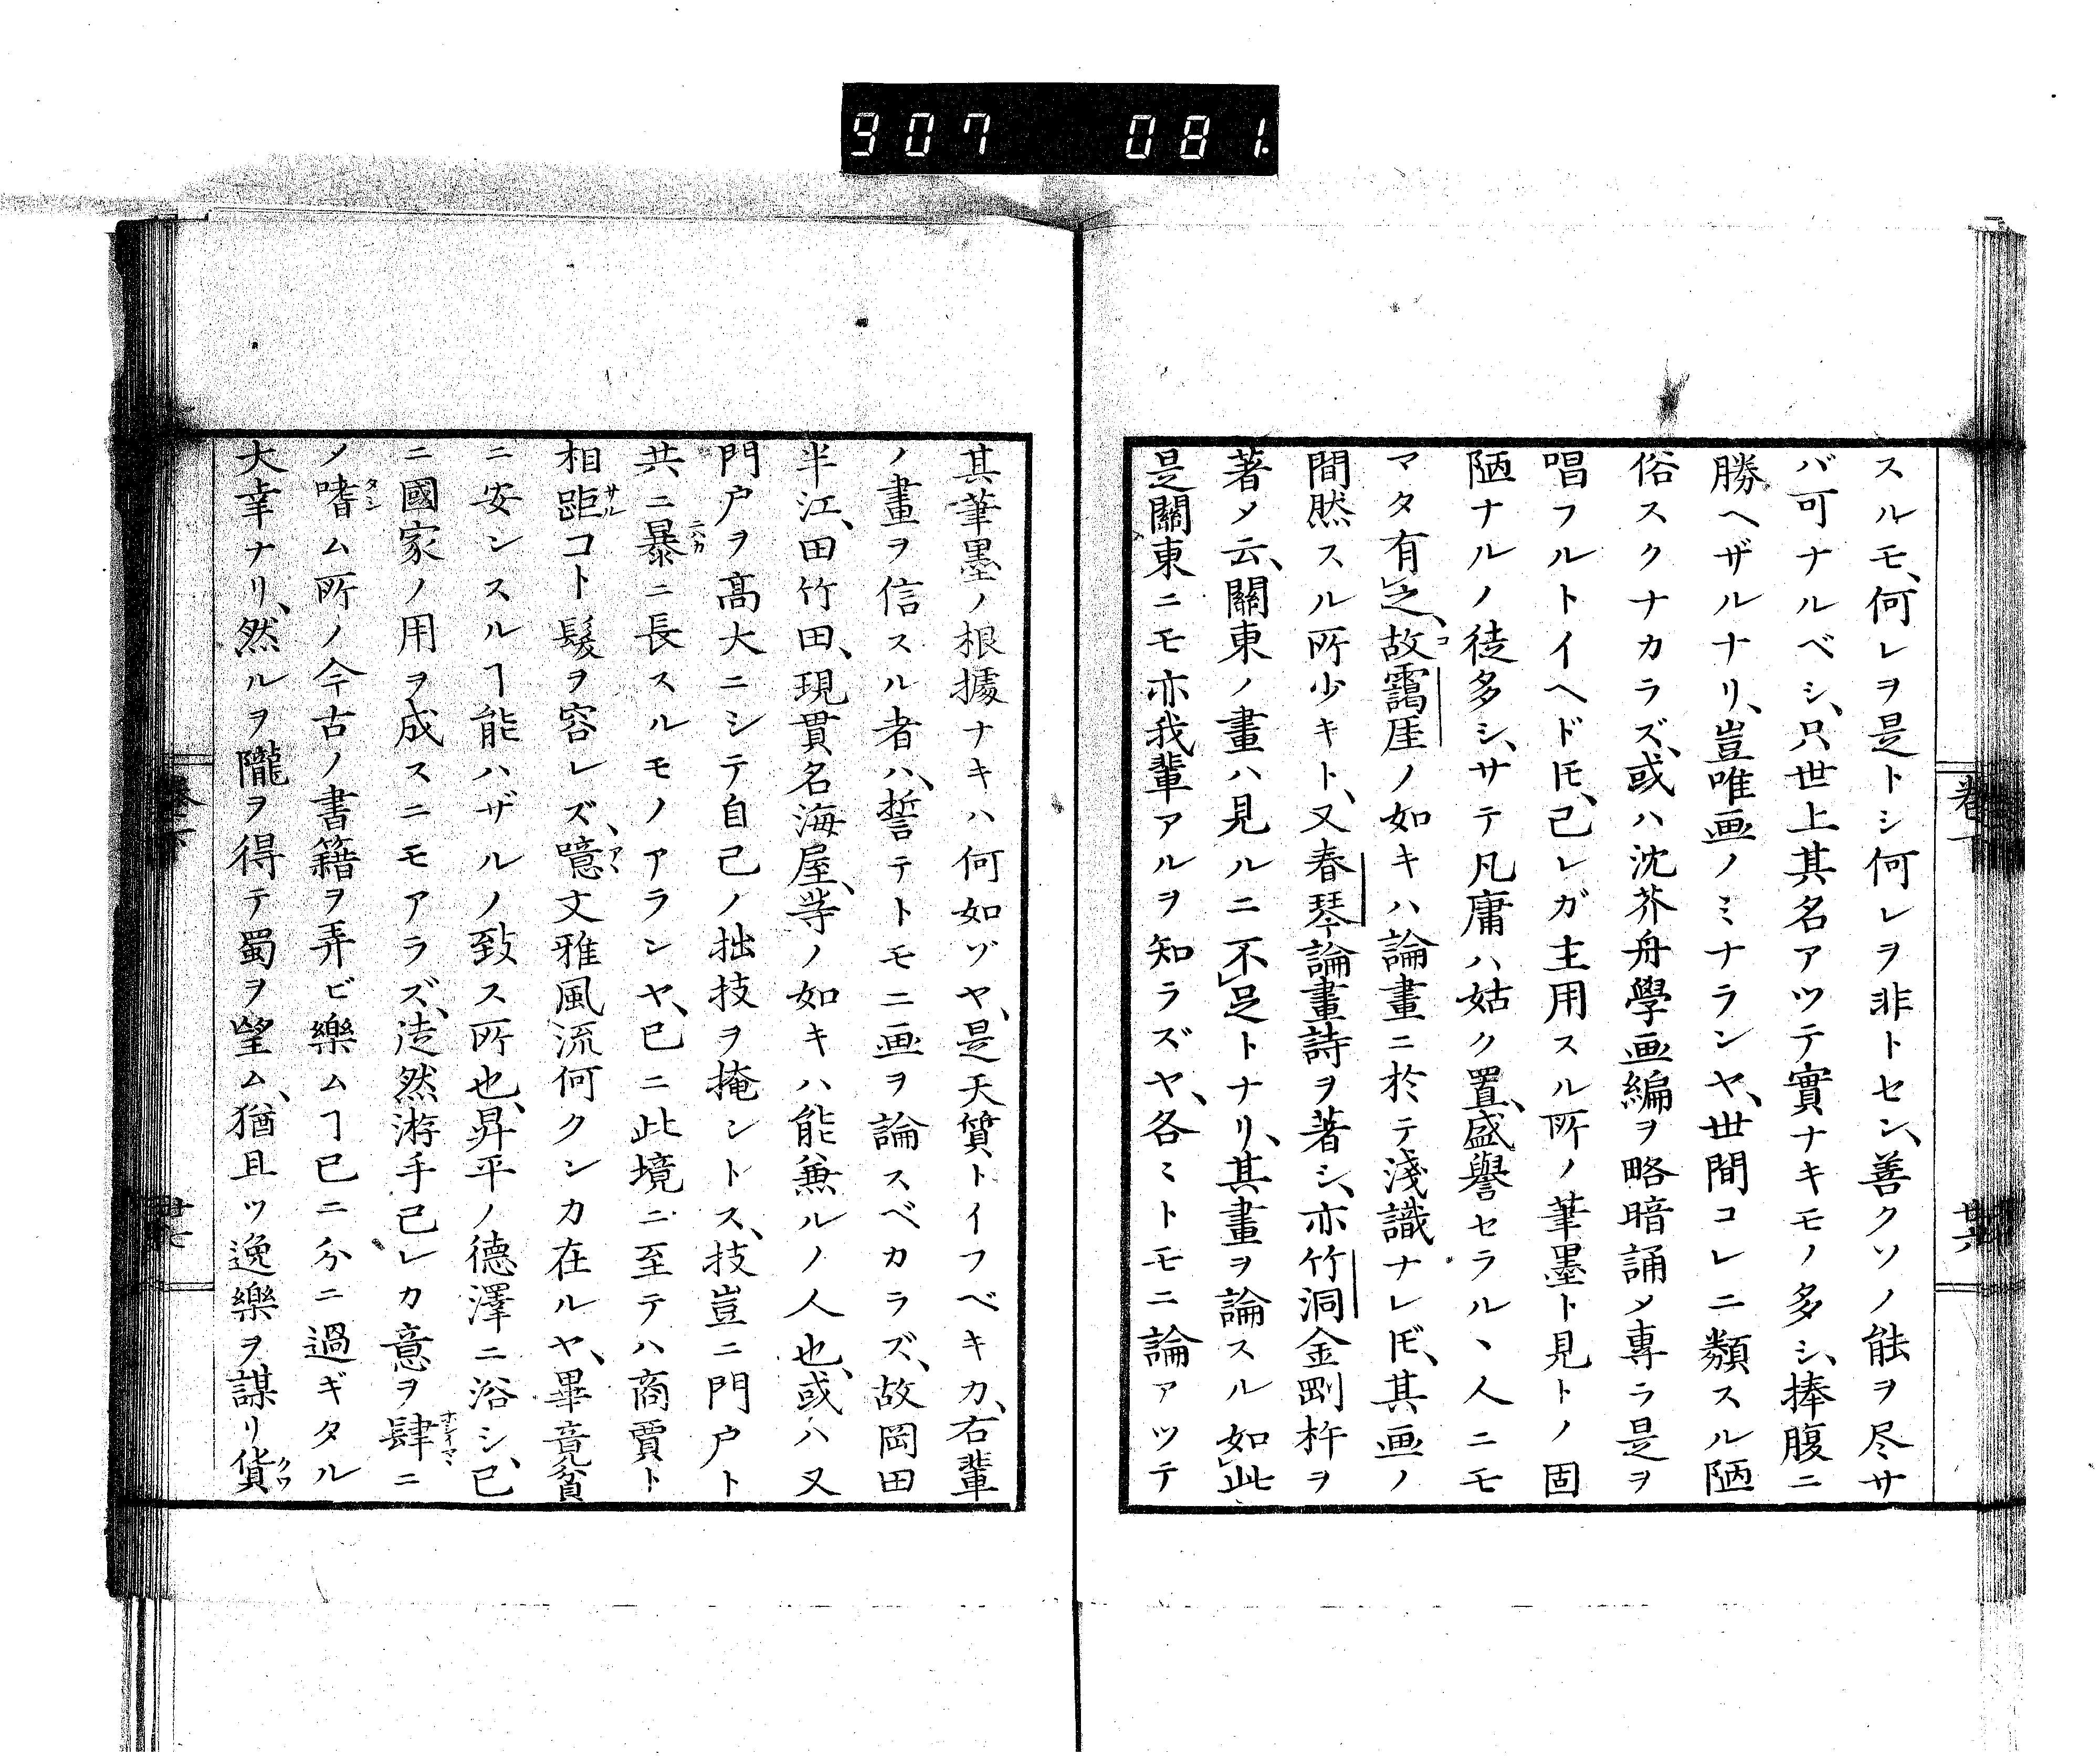 907 081.
スルモ、何レヲ是トシ何レヲ非トセン、善クソノ能ヲ尽サ
バ可ナルベシ、只世上其名アツテ實ナキモノ多シ、捧腹ニ
勝ヘザルナリ、豈唯画ノミナランヤ、世間コレニ類スル陋
俗スクナカラズ、或ハ沈芥舟學画編ヲ略暗誦メ專ラ是ヲ
唱フルトイヘドモ、己レガ主用スル所ノ筆墨ト見トノ固
陋ナルノ徒多シ、サテ凡庸ハ姑ク置、盛譽セラル、人ニモ
マタ有之、故靄厓ノ如キハ論畫ニ於テ淺識ナレドモ、其画ノ
間然スル所少キト、又春琴論畫詩ヲ著シ、亦竹洞金剛杵ヲ
著メ云、關東ノ畫ハ見ルニ不足トナリ、其畫ヲ論スル如此、
是關東ニモ亦我輩アルヲ知ラズヤ、各ミトモニ論アツテ
卷下
廿六
其筆墨ノ根據ナキハ何如ゾヤ、是天質トイフベキカ、右輩
ノ畫ヲ信スル者ハ、誓テトモニ画ヲ論スベカラズ、故岡田
半江、田竹田、現貫名海屋、䓁ノ如キハ能無ルノ人也、或ハ又
門戸ヲ高大ニシテ自己ノ拙技ヲ掩ントス、技豈ニ門戸ト
共ニ暴ニ長スルモノアランヤ、已ニ此境ニ至テハ商賈ト
相距コト髮ヲ容レズ、噫文雅風流何クンカ在ルヤ、畢竟貧
ニ安ンスルヿ能ハザルノ致ス所也、昇平ノ德澤ニ浴シ、已
ニ國家ノ用ヲ成スニモアラズ、徒然游手己レカ意ヲ肆ニ
ノ嗜ム所ノ今古ノ書籍ヲ弄ビ樂ムヿ已ニ分ニ過ギタル
大幸ナリ、然ルヲ隴ヲ得テ蜀ヲ望ム、猶且ツ逸樂ヲ謀リ貨